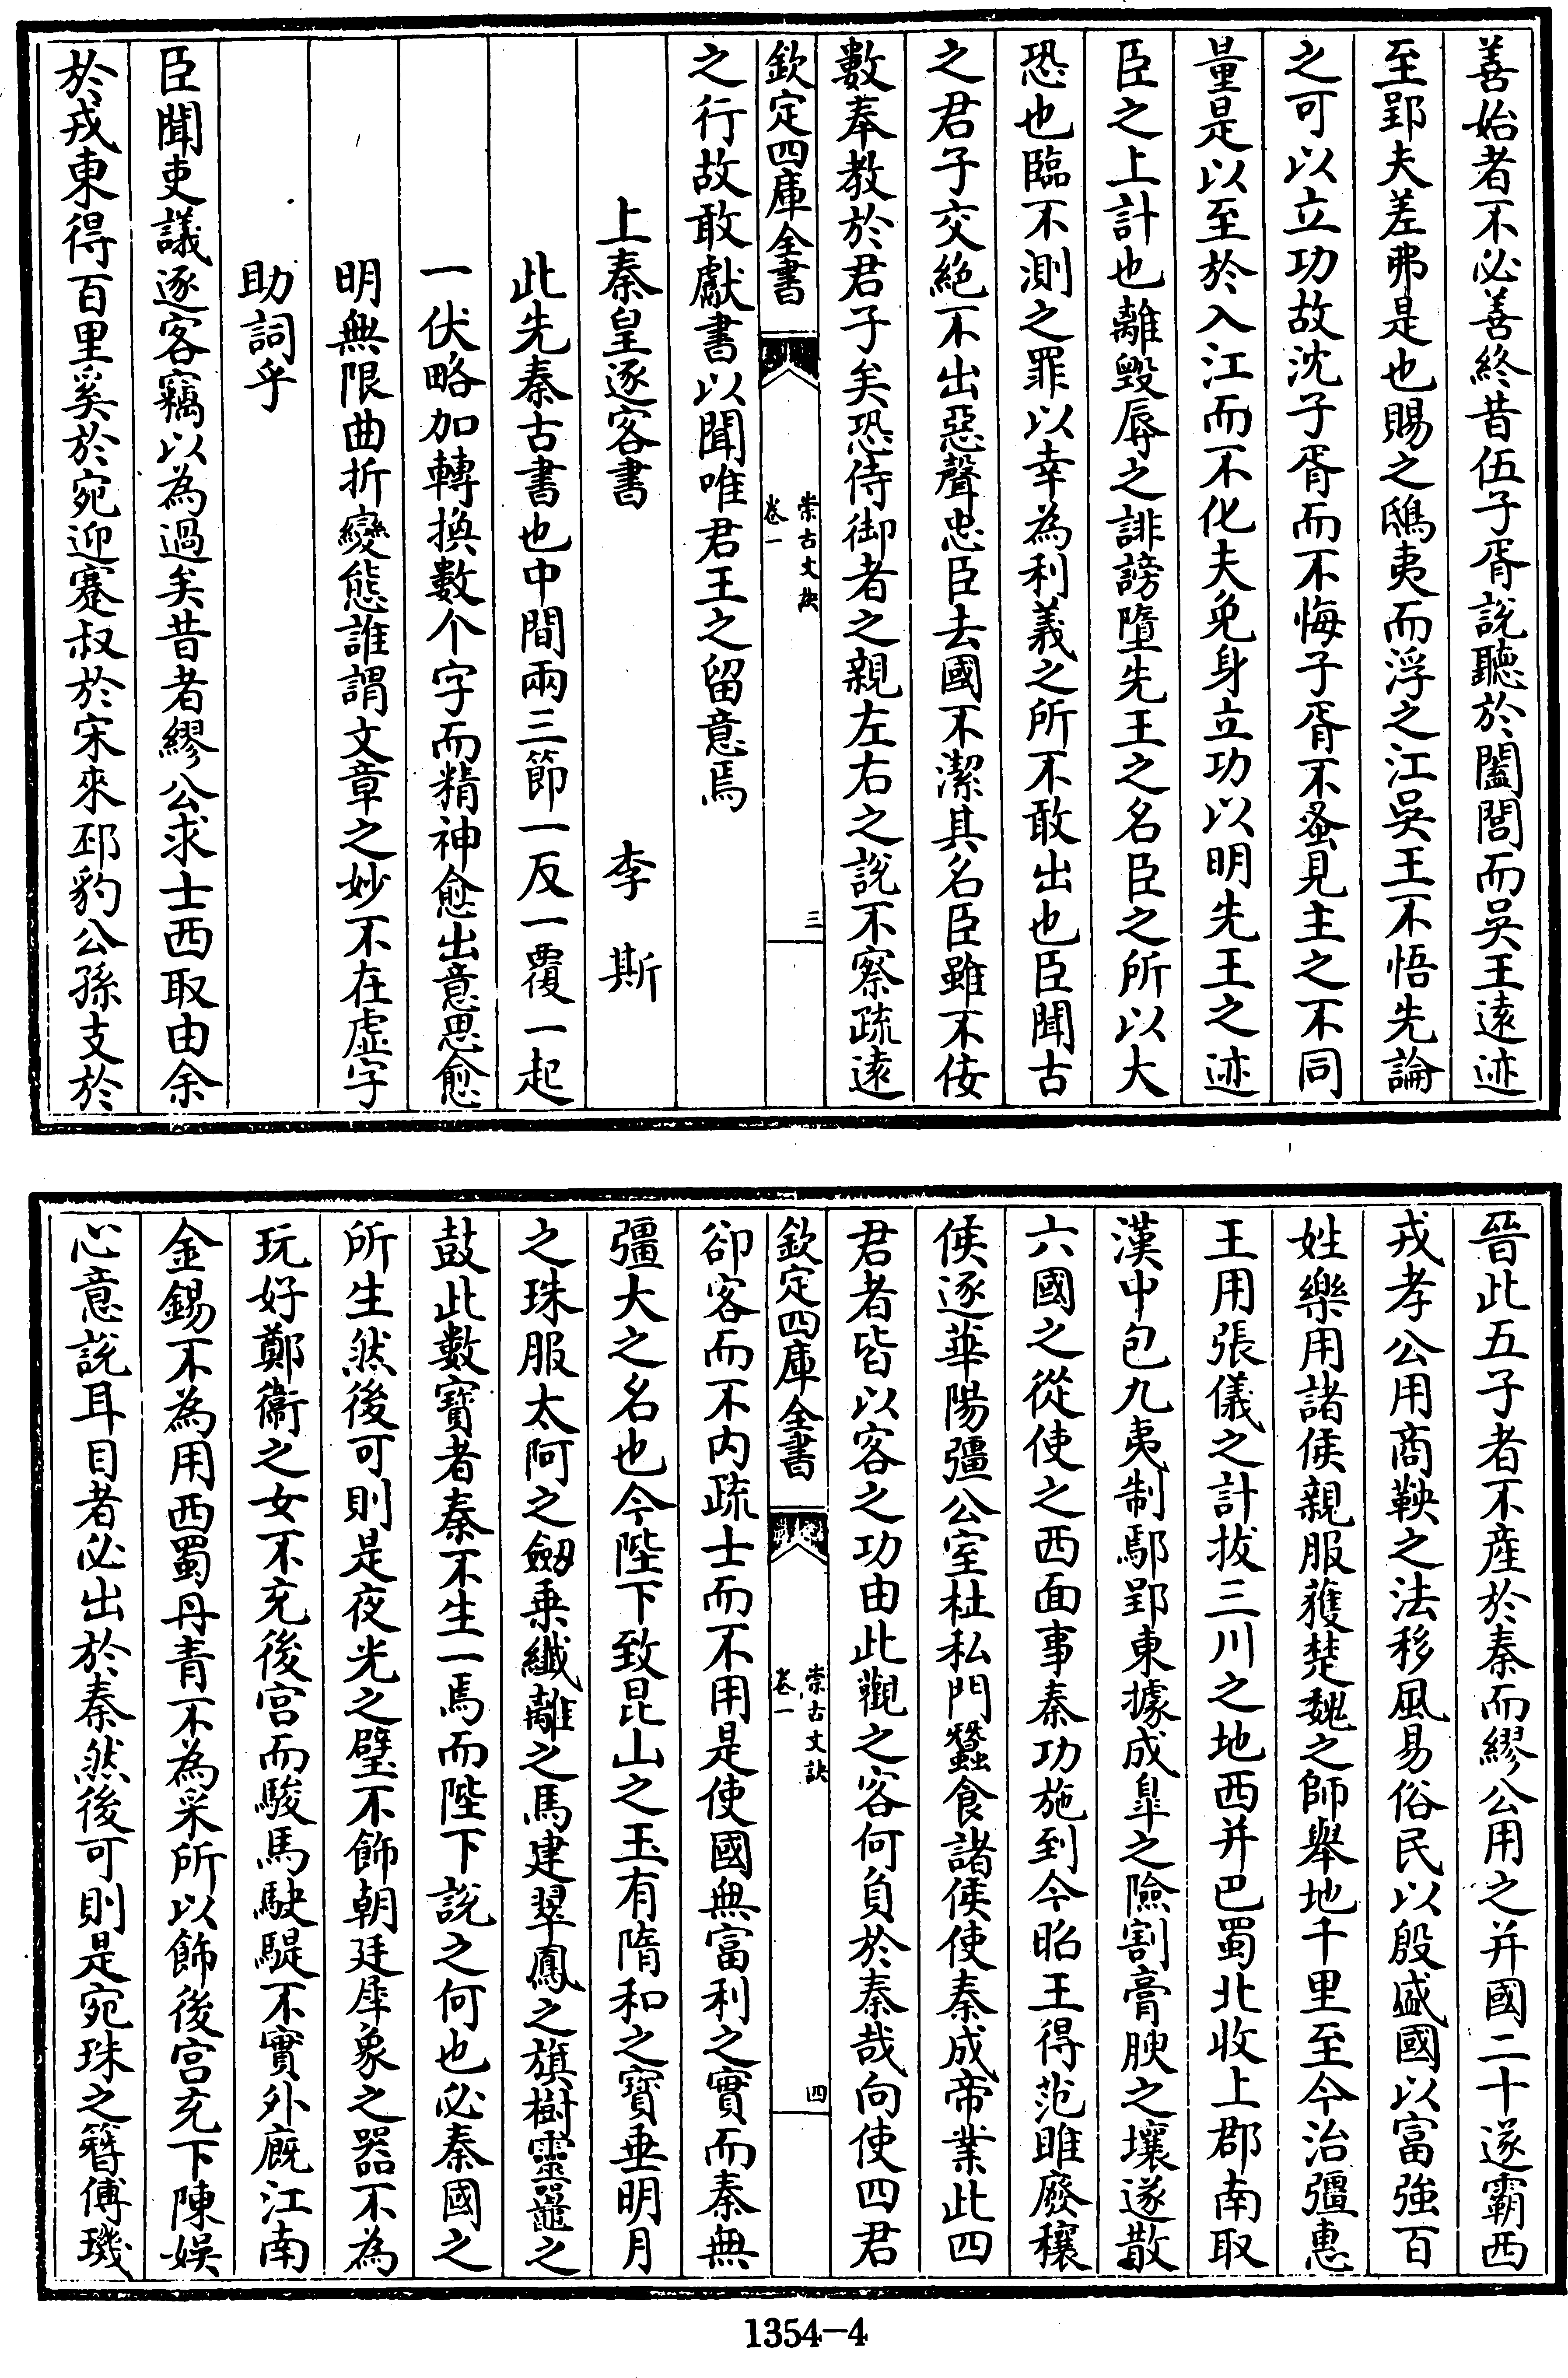 善始者不必善終昔伍子胥說聽於闔閭而吳王遠迹
至郢夫差弗是也賜之鴟夷而浮之江吳王不悟先論
之可以立功故沈子胥而不悔子胥不蚤見主之不同
量是以至於入江而不化夫免身立功以明先王之迹
臣之上計也離毀辱之誹謗墮先王之名臣之所以大
恐也臨不測之罪以幸為利義之所不敢出也臣聞古
之君子交絕不出惡聲忠臣去國不潔其名臣雖不佞
數奉教於君子矣恐侍御者之親左右之說不察疏遠
欽定四庫全書
崇古文訣
卷一
三
之行故敢獻書以聞唯君王之留意焉
上秦皇逐客書 李斯
此先秦古書也中間兩三節一反一覆一起
一伏略加轉換數个字而精神愈出意思愈
明無限曲折變態誰謂文章之妙不在虛字
助詞乎
臣聞吏議逐客竊以為過矣昔者繆公求士西取由余
於戎東得百里奚於宛迎蹇叔於宋來邳豹公孫支於
晉此五子者不產於秦而繆公用之并國二十遂霸西
戎孝公用商鞅之法移風易俗民以殷盛國以富強百
姓樂用諸侯親服獲楚魏之師舉地千里至今治彊惠
王用張儀之計拔三川之地西并巴蜀北收上郡南取
漢中包九夷制鄢郢東據成皐之險割膏腴之壤遂散
六國之從使之西面事秦功施到今昭王得范雎廢穰
侯逐華陽彊公室杜私門蠶食諸侯使秦成帝業此四
君者皆以客之功由此觀之客何負於秦哉向使四君
欽定四庫全書
崇古文訣
卷一
四
卻客而不內疏士而不用是使國無富利之實而秦無
彊大之名也今陛下致昆山之玉有隋和之寶垂明月
之珠服太阿之劔乗纖離之馬建翠鳳之旗樹靈鼉之
鼓此數寶者秦不生一焉而陛下說之何也必秦國之
所生然後可則是夜光之璧不飾朝廷犀象之器不為
玩好鄭衞之女不充後宮而駿馬駃騠不實外廐江南
金錫不為用西蜀丹青不為采所以飾後宮充下陳娛
心意說耳目者必出於秦然後可則是宛珠之簪傅璣
1354-4